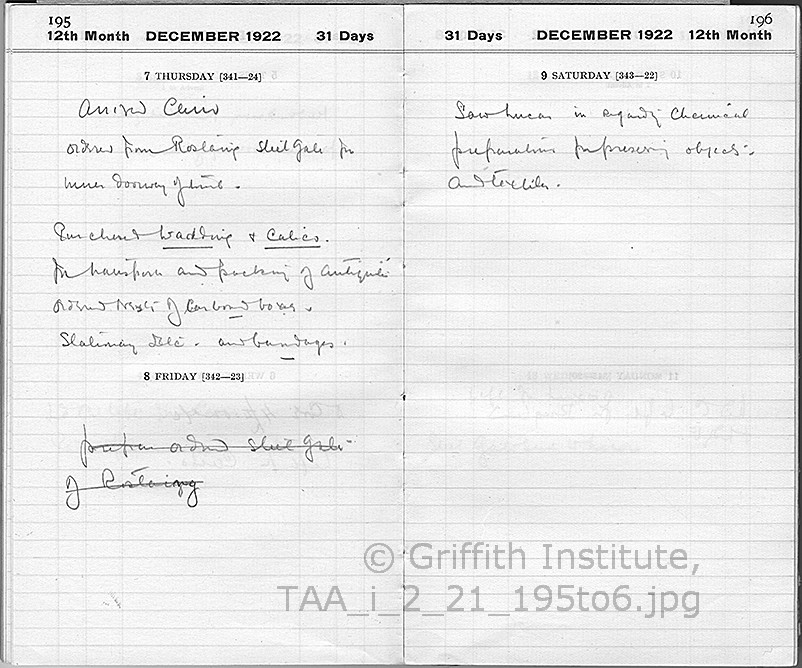 195
12th Month DECEMBER 1922 31 Days
7 THURSDAY [341—24]
Arrived Cairo
ordered from Rostaing Steel Gate for
inner doorway of tomb.
Purchased Wadding & Calico.
for transport and packing of antiquities
ordered nests of Carbond boxes.
Stationary etc. and bandages.
8 FRIDAY [342—23]
ordered Steel Gate
of Rostaing
196
31 Days DECEMBER 1922 12th Month
9 SATURDAY [343—22]
Saw Lucas in regarding Chemical
preparations for preserving objects.
and textiles.
© Griffith Institute,
TAA_i_2_21_195to6.jpg